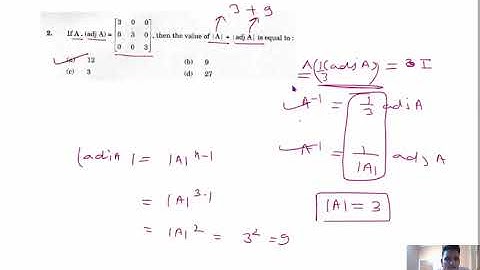 3 + 9
2. If A . (adj A) = [3 0 0
0 3 0
0 0 3], then the value of |A| + |adj A| is equal to :
(a) 12 (b) 9
(c) 3 (d) 27
A(1/3 adj A) = 3 I
A⁻¹ = 1/3 adj A
A⁻¹ = 1/|A| adj A
|A| = 3
|adj A| = |A|ⁿ⁻¹
= |A|³⁻¹
= |A|² = 3² = 9